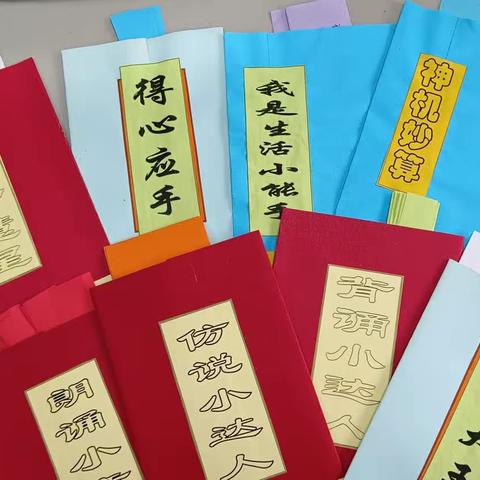 得心应手
我是生活小能手
神机妙算
背诵小达人
仿说小达人
朗诵小